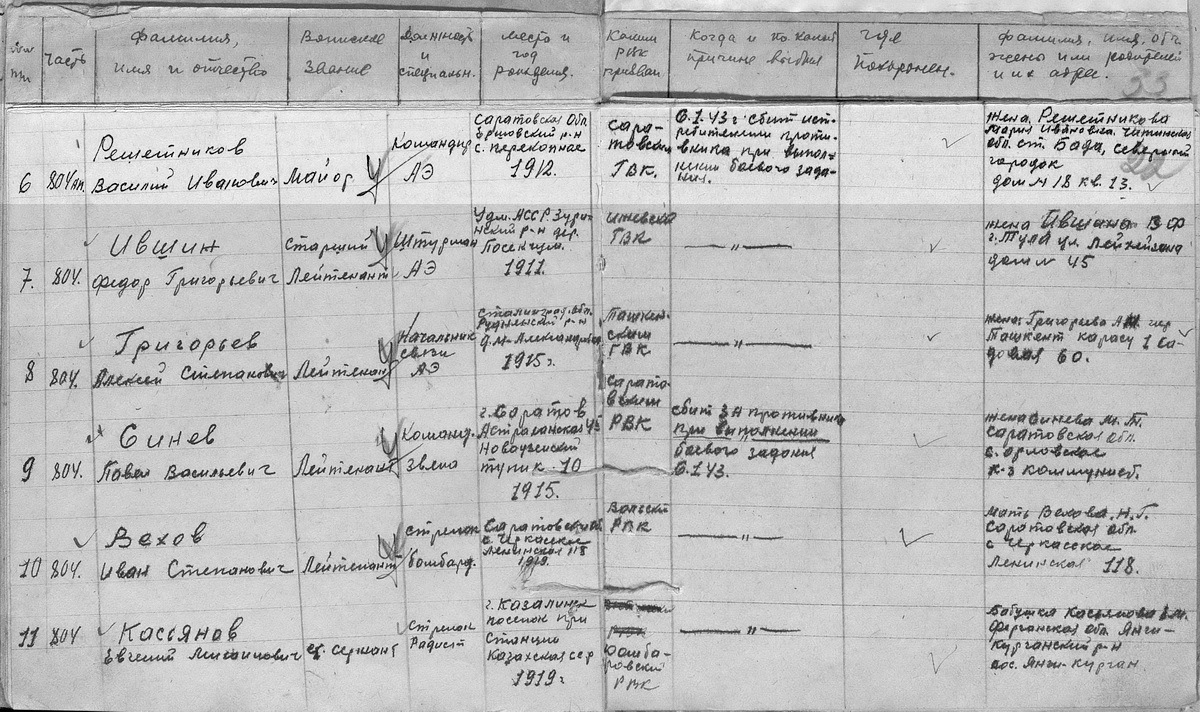 №№ пп
Часть
Фамилия, имя и отчество
Воинское звание
Должность и специальн.
место и год рождения.
Каким РВК призван
Когда и по какой причине выбыл
где похоронен.
фамилия, имя, отч. жены или родителей и их адрес.
33
22
6
804 ап.
Решетников
Василий Иванович
Майор
Командир
АЭ
Саратовская обл
с. перекопное
1912.
Сара-
товским
ГВК.
6.1.43 г сбит ист-
ребителями проти-
вника при выпол-
нении боевого зада-
ния.
жена Решетникова
Мария Ивановна Читинская
обл. ст. Бада, северный
городок
дом № 18 кв. 13.
7.
804.
Ившин
Федор Григорьевич
Старший
Лейтенант
Штурман
АЭ
Удм. АССР. Зурин-
нский р-н дер.
1911.
Ижевско
ГВК
— „ —
жена Ившина В Ф
г. Тула ул. Лейтейзена
дом № 45
8
804.
Григорьев
Алексей Степанович
Лейтенант
Начальник
связи
АЭ
Сталинград. обл.
Руднянский р-н
1915 г.
Ташкен-
ским
ГВК
— „ —
жена Григорьева А гор
Ташкент карасу 1 са-
довая 60.
9
804.
Синев
Павел Васильевич
Лейтенант
Команд.
Звена
г. Саратов
Астраханская 45
Новоузенский
тупик 10
1915.
Сарато
вским
РВК
сбит ЗА противника
при выполнении
боевого задания
6.1.43.
жена Синева М. Т.
Саратовская обл.
с. Орловское
к-з Коммунист.
10
804.
Вехов
Иван Степанович
Лейтенант
Стрелок
бомбард.
Саратовская об
с. Черкасское
Ленинская 118
Вольский
РВК
— „ —
мать Вехова. Н. Г.
Саратовская обл
с Черкасское
Ленинская 118.
11
804
Касьянов
Евгений Михайлович
ст. сержант
Стрелок
Радист
г. Казалинск
поселок при
Станции
Казахская сср
1919 г
ровский
РВК
— „ —
бабушка
Ферганская обл Янги-
Курганский р-н
пос. Янги-курган